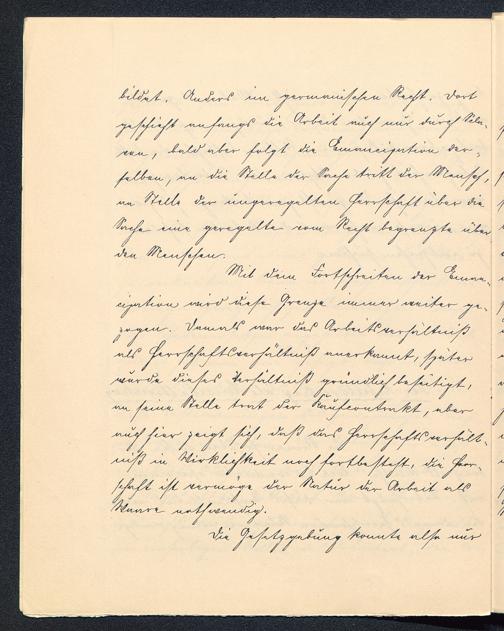 bildet. Anders im germanischen Recht. Dort
geschieht anfangs die Arbeit auch nur durch Skla-
ven, bald aber folgt die Emancipation der-
selben, an die Stelle der Sache tritt der Mensch,
an Stelle der ungeregelten Herrschaft über die
Sache eine geregelte vom Recht begrenzte über
den Menschen.
Mit dem Fortschreiten der Eman-
cipation wird diese Grenze immer weiter ge-
zogen. Damals war das Arbeitsverhältniß
als Herrschaftsverhältniß anerkannt, später
wurde dieses Verhältniß gründlich beseitigt,
an seine Stelle trat der Kaufcontrakt, aber
auch hier zeigt sich, daß das Herrschaftsverhält-
niß in Wirklichkeit noch fortbesteht, die Herr-
schaft ist vermöge der Natur der Arbeit als
Waare nothwendig.
Die Gesetzgebung konnte also nur